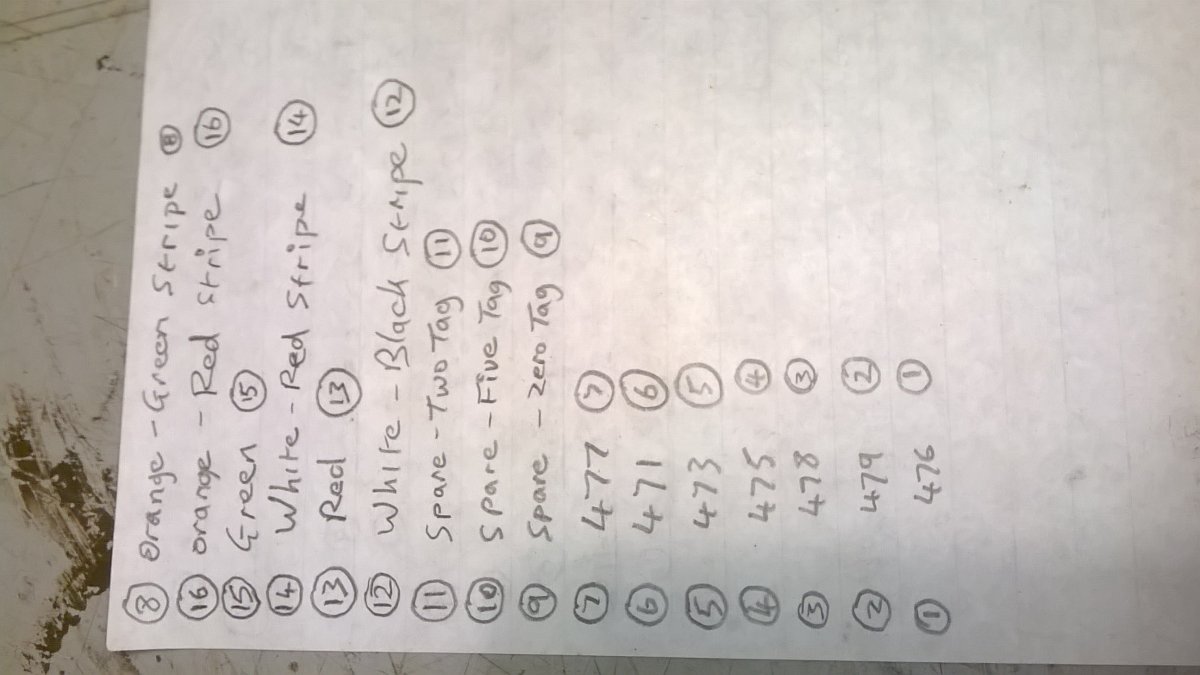 ⑧ Orange - Green Stripe ⑧
⑯ orange - Red Stripe ⑯
⑮ Green ⑮
⑭ White - Red Stripe ⑭
⑬ Red ⑬
⑫ White - Black Stripe ⑫
⑪ Spare - Two Tag ⑪
⑩ Spare - Five Tag ⑩
⑨ Spare - Zero Tag ⑨
⑦ 477 ⑦
⑥ 471 ⑥
⑤ 473 ⑤
④ 475 ④
③ 478 ③
② 479 ②
① 476 ①